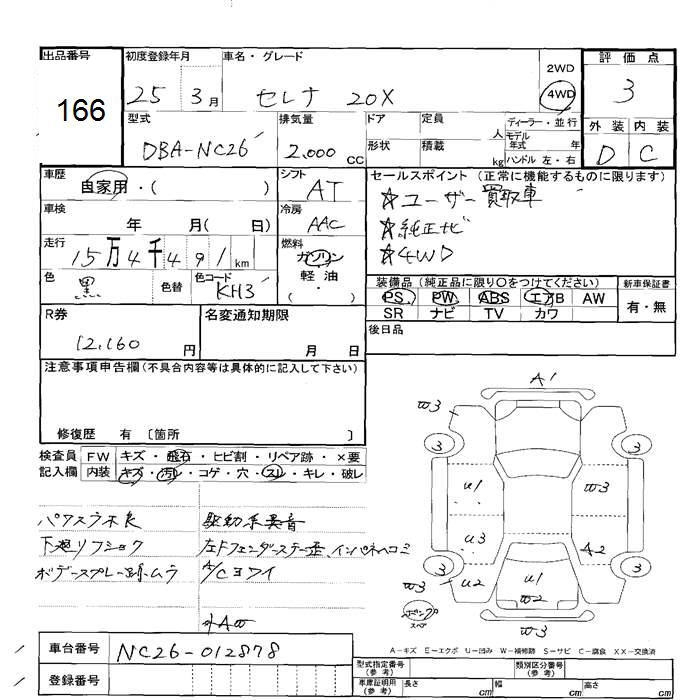 出品番号
166
初度登録年月
25 3月
車名・グレード
セレナ 20X
2WD
4WD
評価点
3
型式
DBA-NC26
排気量
2.000 CC
ドア
形状
定員 人
積載 kg
ディーラー・並行
モデル年式 年
ハンドル 左・右
外装 内装
D C
車歴
自家用・( )
シフト
AT
セールスポイント(正常に機能するものに限ります)
☆ユーザー買取車
☆純正ナビ
☆4WD
車検
年 月( 日)
冷房
AAC
走行
15万4千491km
燃料
ガソリン
軽・油
( ・ )
色
黒
色替
色コード
KH3
装備品(純正品に限り○をつけてください)
PS PW ABS エアB AW
SR ナビ TV カワ
新車保証書
有・無
R券
12,160 円
名変通知期限
月 日
後日品
注意事項申告欄(不具合内容等は具体的に記入して下さい)
修復歴 有 〔箇所 〕
検査員記入欄
FW キズ・飛石・ヒビ割・リペア跡・×要
内装 キズ・汚レ・コゲ・穴・スレ・キレ・破レ
パワステラ不良
駆動系異音
下廻リフショク
左Fフェンダーステー歪、インパネヘコミ
ボデースプレー跡ムラ
A/Cヨワイ
外AW
A1
W3
3
3
U1
W3
U3
A2
3
3
U2
U1
W2
W3
W3
ポンプ
スペア
A-キズ E-エクボ U-凹み W-補修跡 S-サビ C-腐食 XX-交換済
車台番号
NC26-012878
登録番号
型式指定番号(参考)
類別区分番号(参考)
車庫証明用(参考)
長さ cm
幅 cm
高さ cm